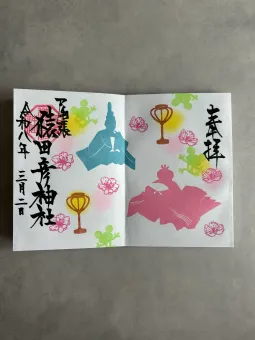 奉拝
尾張
猿田彦神社
令和八年
三月二日